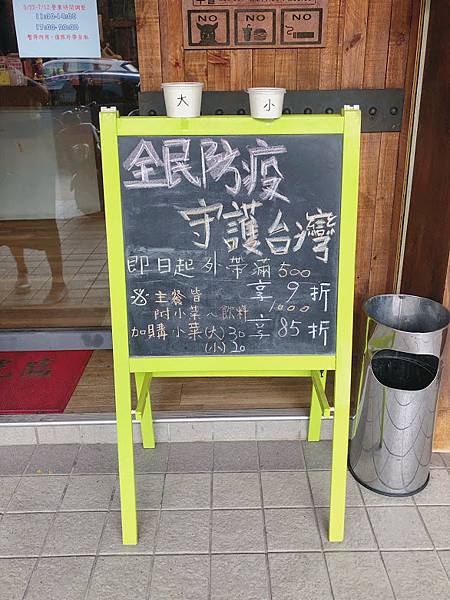 5/22-7/12 營業時間調整
11:00-14:00
17:00-20:00
暫停內用,僅限外帶自取
NO NO NO
大 小
全民防疫
守護台灣
即日起外帶滿500
享9折
※主餐皆 1000
附小菜~飲料 享85折
加購小菜(大)30
(小)20